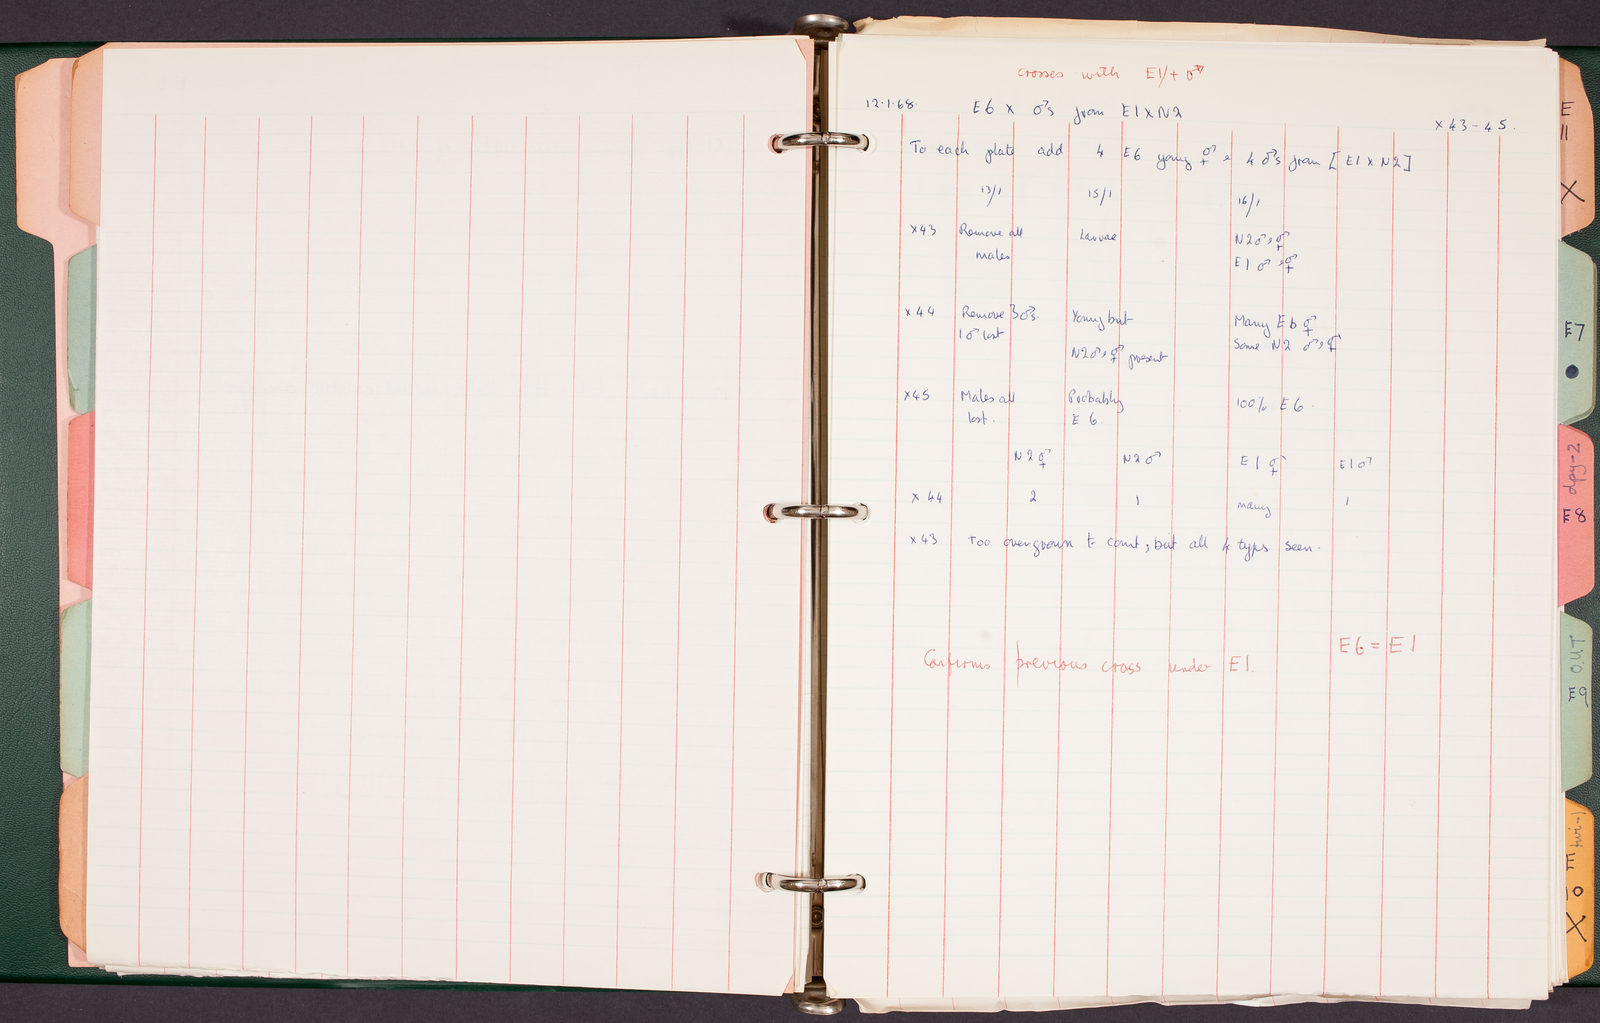 crosses with E1/+ ♂
12.1.68. E6 x ♂s from E1 x N2
x 43 - 45.
To each plate add 4 E6 young ⚥ + 4 ♂s from [E1 x N2]
13/1 15/1 16/1
x43 Remove all Larvae N2 ♂, ⚥
males E1 ♂, ⚥
x44 Remove 3♂s. Young but Many E6 ⚥
1♂ lost N2♂, ⚥ present Some N2 ♂, ⚥
x45 Males all Probably 100% E6.
lost. E6.
N2 ⚥ N2 ♂ E1 ⚥ E1 ♂
x 44 2 1 many 1
x43 Too overgrown to count, but all 4 types seen.
E6 = E1
Confirms previous cross under E1.
E
11
X
E7
dpy-2
E8
OUT
E9
E
10
X